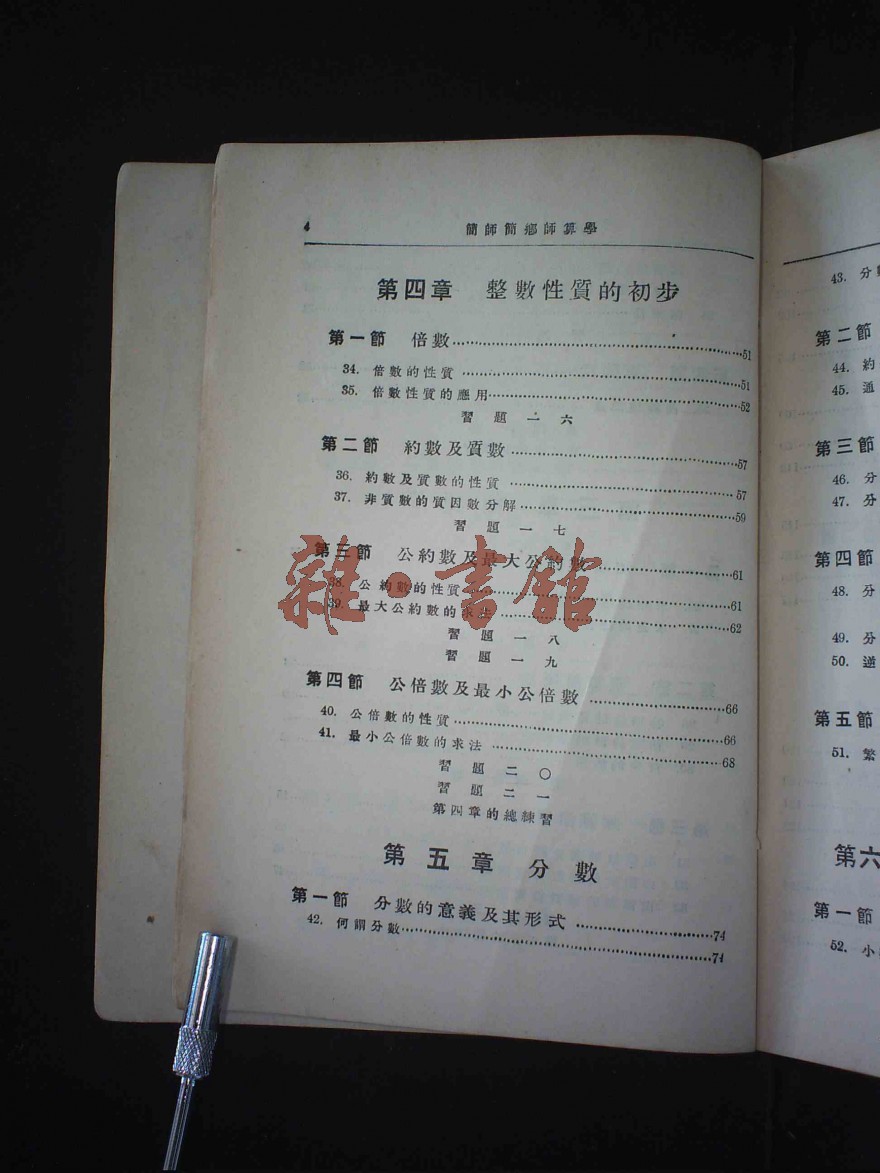 4 簡師簡鄉師算學
第四章 整數性質的初步
第一節 倍數……51
34. 倍數的性質……51
35. 倍數性質的應用……52
習題一六
第二節 約數及質數……57
36. 約數及質數的性質……57
37. 非質數的質因數分解……59
習題一七
第三節 公約數及最大公約數……61
38. 公約數的性質……61
39. 最大公約數的求法……62
習題一八
習題一九
第四節 公倍數及最小公倍數……66
40. 公倍數的性質……66
41. 最小公倍數的求法……68
習題二〇
習題二一
第四章的總練習
第五章 分數
第一節 分數的意義及其形式……74
42. 何謂分數……74
雜·書館
43. 分
第二節
44. 約
45. 通
第三節
46. 分
47. 分
第四節
48. 分
49. 分
50. 逆
第五節
51. 繁
第六
第一節
52. 小